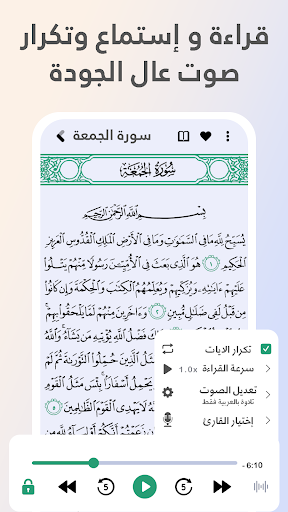 قراءة و إستماع وتكرار
صوت عال الجودة
سورة الجمعة
سُورَةُ الجُمُعَةِ
بِسْمِ اللَّهِ الرَّحْمَٰنِ الرَّحِيمِ
يُسَبِّحُ لِلَّهِ مَا فِي السَّمَٰوَٰتِ وَمَا فِي الْأَرْضِ الْمَلِكِ الْقُدُّوسِ الْعَزِيزِ
الْحَكِيمِ ١ هُوَ الَّذِي بَعَثَ فِي الْأُمِّيِّـۧنَ رَسُولًا مِّنْهُمْ يَتْلُوا
عَلَيْهِمْ ءَايَٰتِهِ وَيُزَكِّيهِمْ وَيُعَلِّمُهُمُ الْكِتَٰبَ وَالْحِكْمَةَ وَإِن كَانُوا
مِن قَبْلُ لَفِي ضَلَٰلٍ مُّبِينٍ ٢ وَءَاخَرِينَ مِنْهُمْ لَمَّا يَلْحَقُوا بِهِمْ
ذَٰلِكَ فَضْلُ اللَّهِ يُؤْتِيهِ مَن
مَثَلُ الَّذِينَ حُمِّلُوا التَّوْرَىٰةَ ثُمَّ لَمْ
يَحْمِلُ أَسْفَارًا بِئْسَ مَثَلُ الْقَوْمِ
لَا يَهْدِي الْقَوْمَ الظَّٰلِمِينَ
تكرار الايات
سرعة القراءة 1.0x
تعديل الصوت
تلاوة بالعربية فقط
إختيار القارئ
- 6:10
5 5